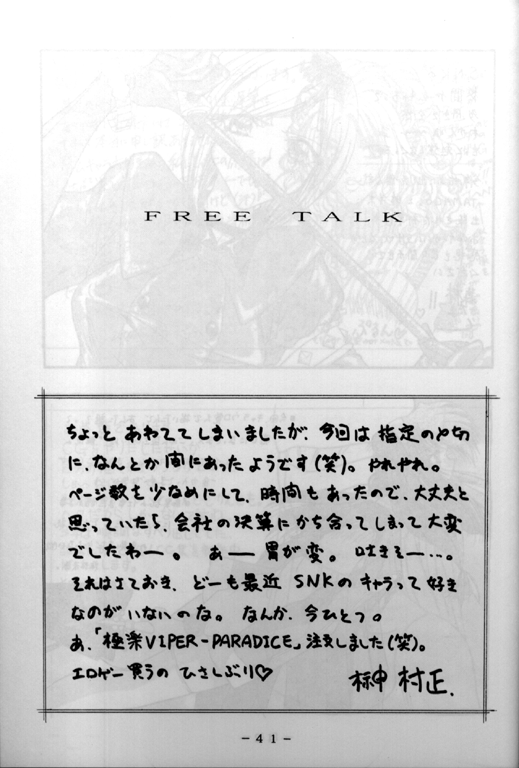 FREE TALK
ちょっと あわててしまいましたが、今回は 指定の〆切
に、なんとか 間にあったようです(笑)。やれやれ。
ページ数を少なめにして、時間もあったので、大丈夫と
思っていたら、会社の決算にかち合ってしまって大変
でしたわー。 あー胃が変。吐きそー…。
それはさておき、どーも最近 SNKのキャラって好き
なのがいないのな。なんか、今ひとつ。
あ、「極楽VIPER-PARADICE」注文しました(笑)。
エロゲー買うの ひさしぶり♡
村正.
-41-